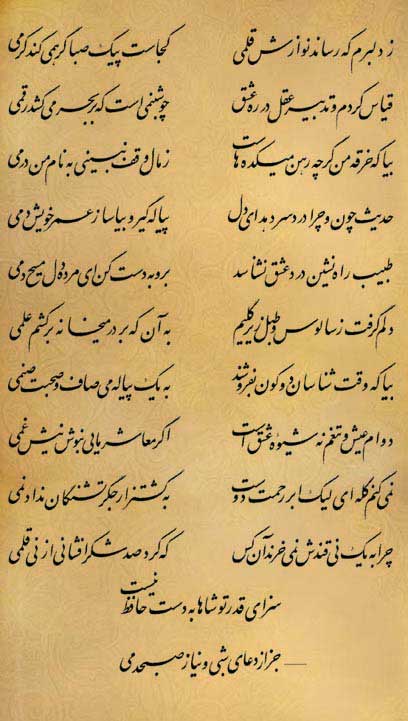 ز دلبرم که رساند نوازش قلمی کجاست پیک صبا گر همی کند کرمی
قیاس کردم و تدبیر عقل در ره عشق چو شبنمی است که بر بحر می کشد رقمی
بیا که خرقه من گرچه رهن میکده هاست ز مال وقف نبینی به نام من درمی
حدیث چون و چرا درد سر دهد ای دل پیاله گیر و بیاسا ز عمر خویش دمی
طبیب راه نشین درد عشق نشناسد برو به دست کن ای مرده دل مسیح دمی
دلم گرفت ز سالوس و طبل زیر گلیم به آن که بر در میخانه برکشم علمی
بیا که وقت شناسان دو کون بفروشند به یک پیاله می صاف و صحبت صنمی
دوام عیش و تنعم نه شیوه عشق است اگر معاشر مایی بنوش نیش غمی
نمی کنم گله ای لیک ابر رحمت دوست به کشتزار جگر تشنگان نداد نمی
چرا به یک نی قندش نمی خرند آن کس که کرد صد شکر افشانی از نی قلمی
سزای قدر تو شاها به دست حافظ نیست
جز از دعای شبی و نیاز صبحدمی